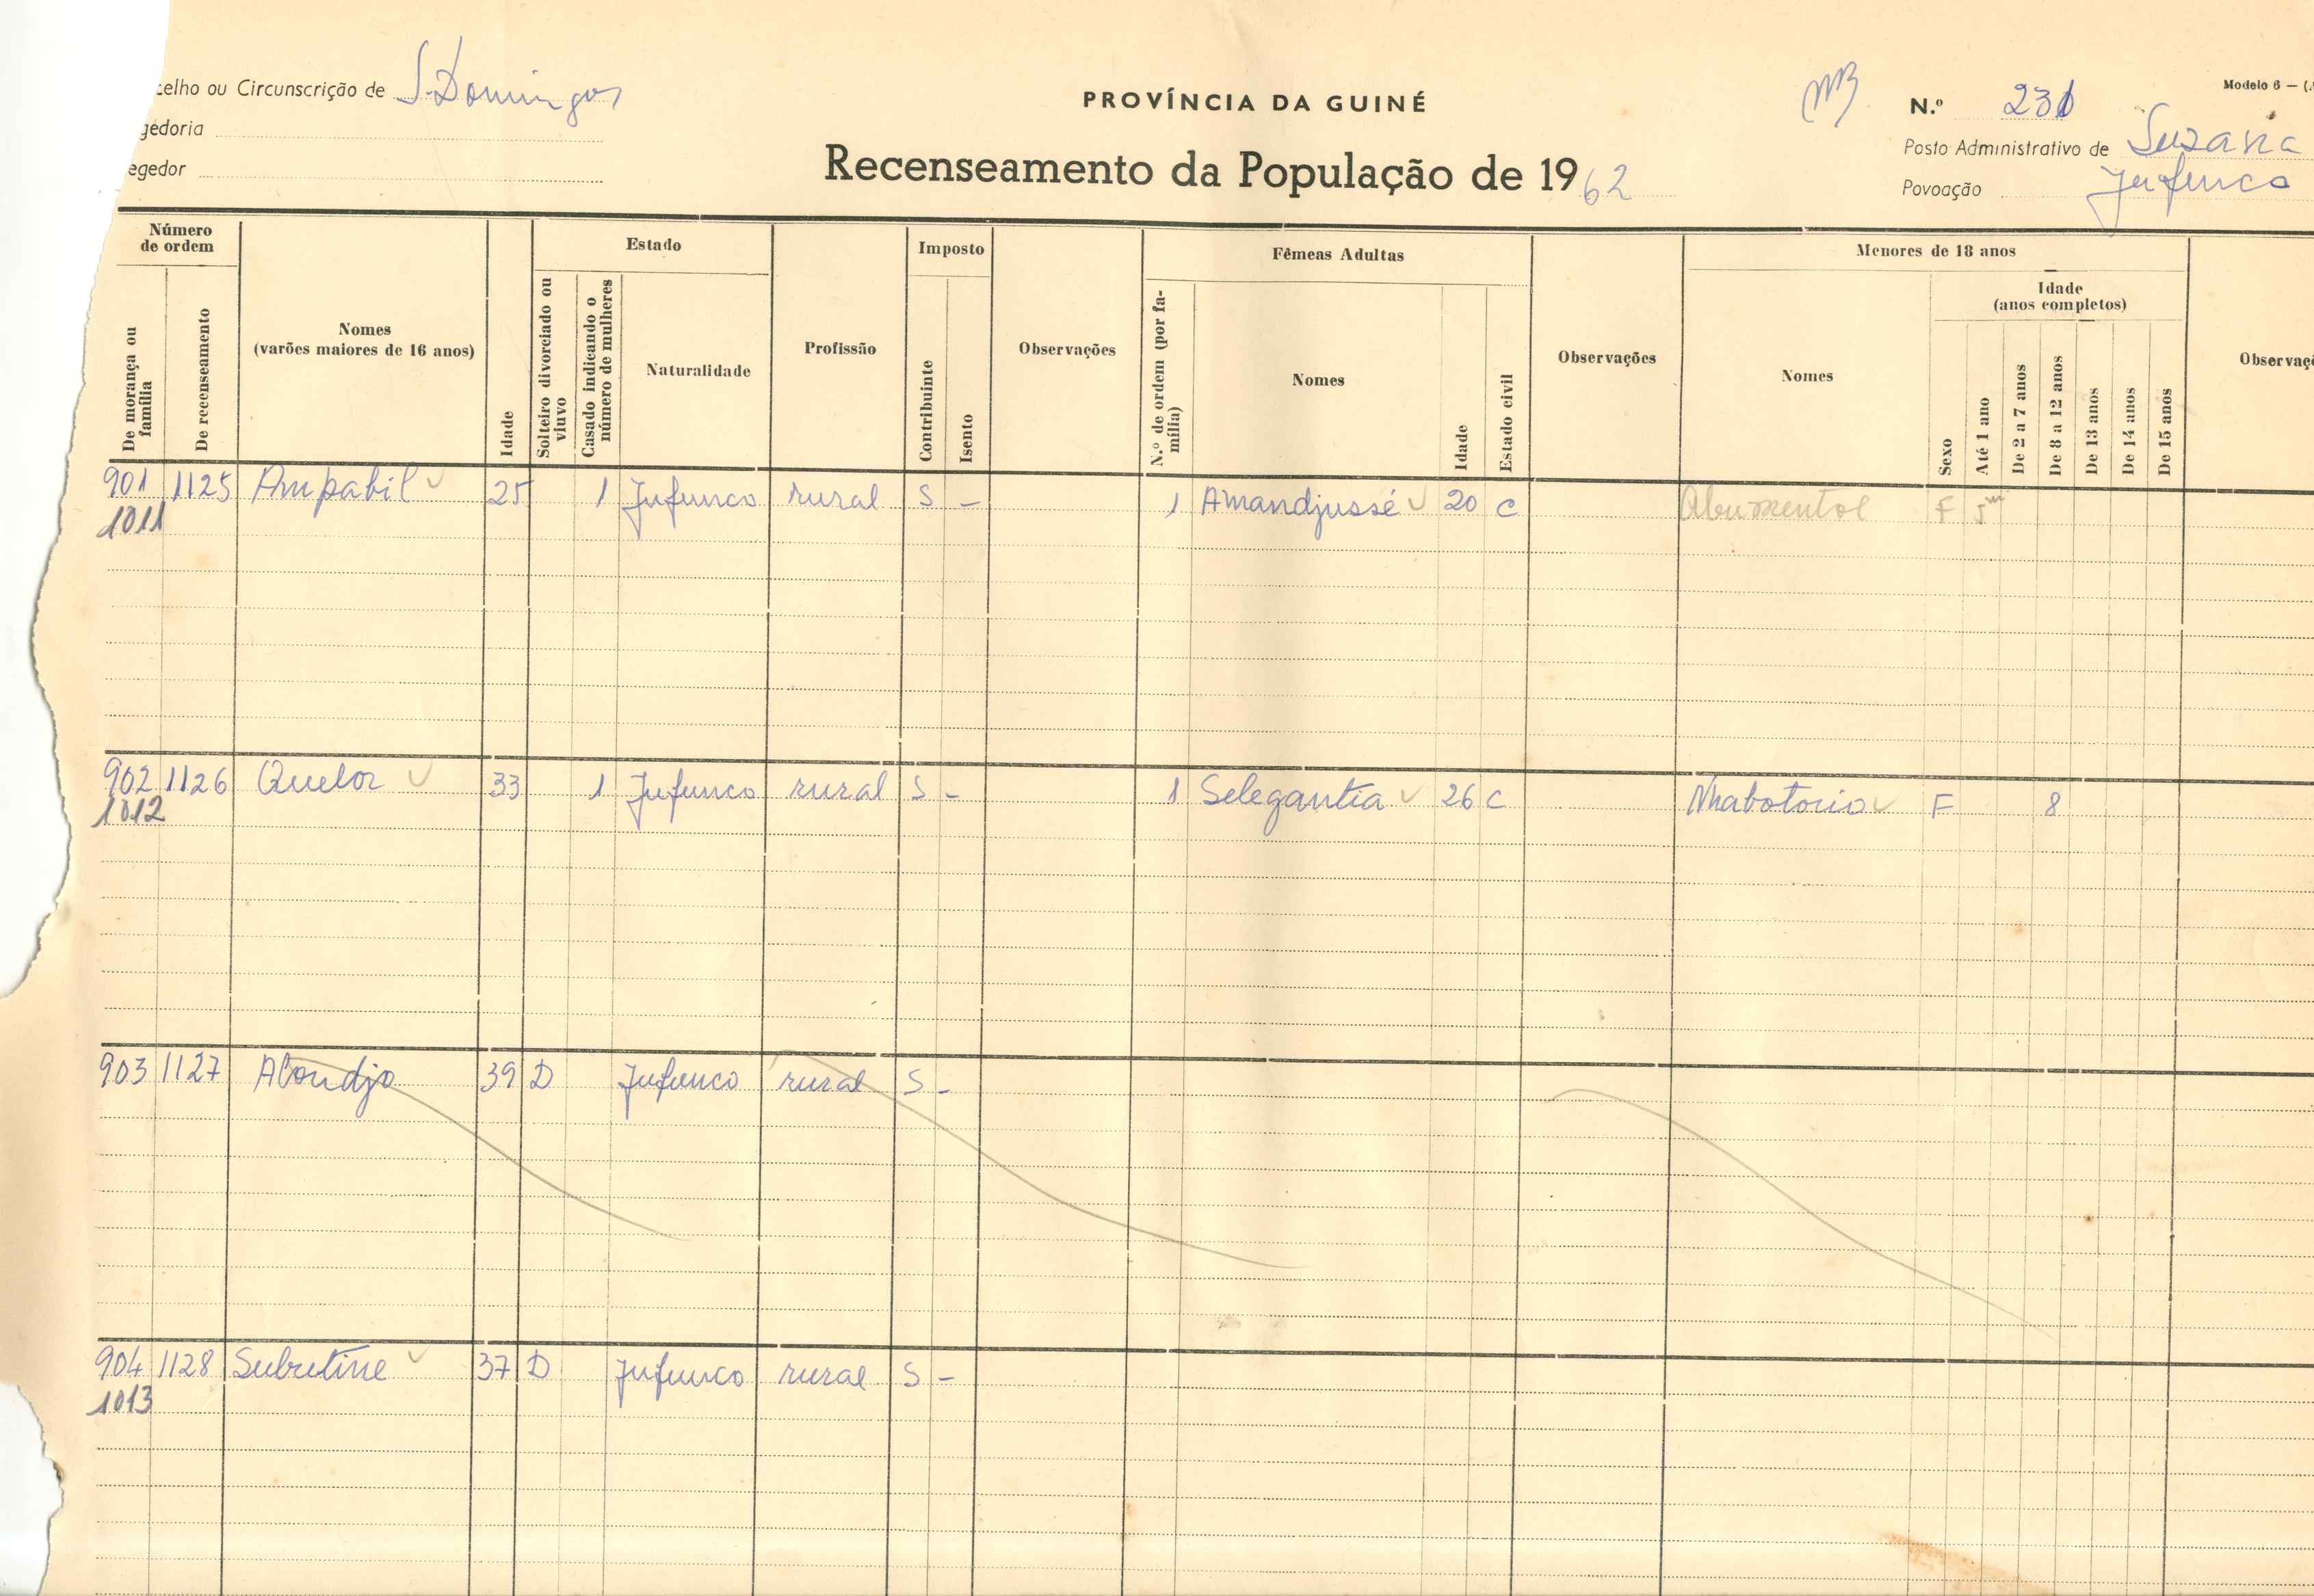 celho ou Circunscrição de S. Domingos
gedoria
egedor
PROVÍNCIA DA GUINÉ
Recenseamento da População de 1962
Modelo 6 — (
N.º 231
Posto Administrativo de Suzana
Povoação Jufunco
Número de ordem
De morança ou família
De recenseamento
Nomes
(varões maiores de 16 anos)
Idade
Estado
Solteiro divorciado ou viuvo
Casado indicando o número de mulheres
Naturalidade
Profissão
Imposto
Contribuinte
Isento
Observações
Fêmeas Adultas
N.º de ordem (por família)
Nomes
Idade
Estado civil
Observações
Menores de 18 anos
Nomes
Sexo
Idade
(anos completos)
Até 1 ano
De 2 a 7 anos
De 8 a 12 anos
De 13 anos
De 14 anos
De 15 anos
Observaç
901 1125 Ampabil 25 1 Jufunco rural S - 1 Amandjussé 20 C F 5m
1011
902 1126 Quelor 33 1 Jufunco rural S - 1 Selegantia 26 C Nhabotorio F 8
1012
903 1127 Aloudjo 39 D Jufunco rural S -
904 1128 Subutine 37 D Jufunco rural S -
1013